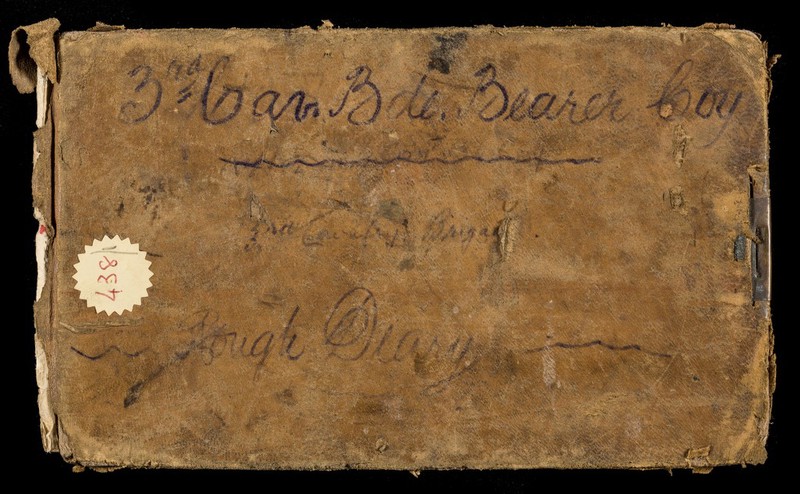 3rd Cav. Bde. Bearer Coy
3rd Cavalry Brigade.
Rough Diary
438